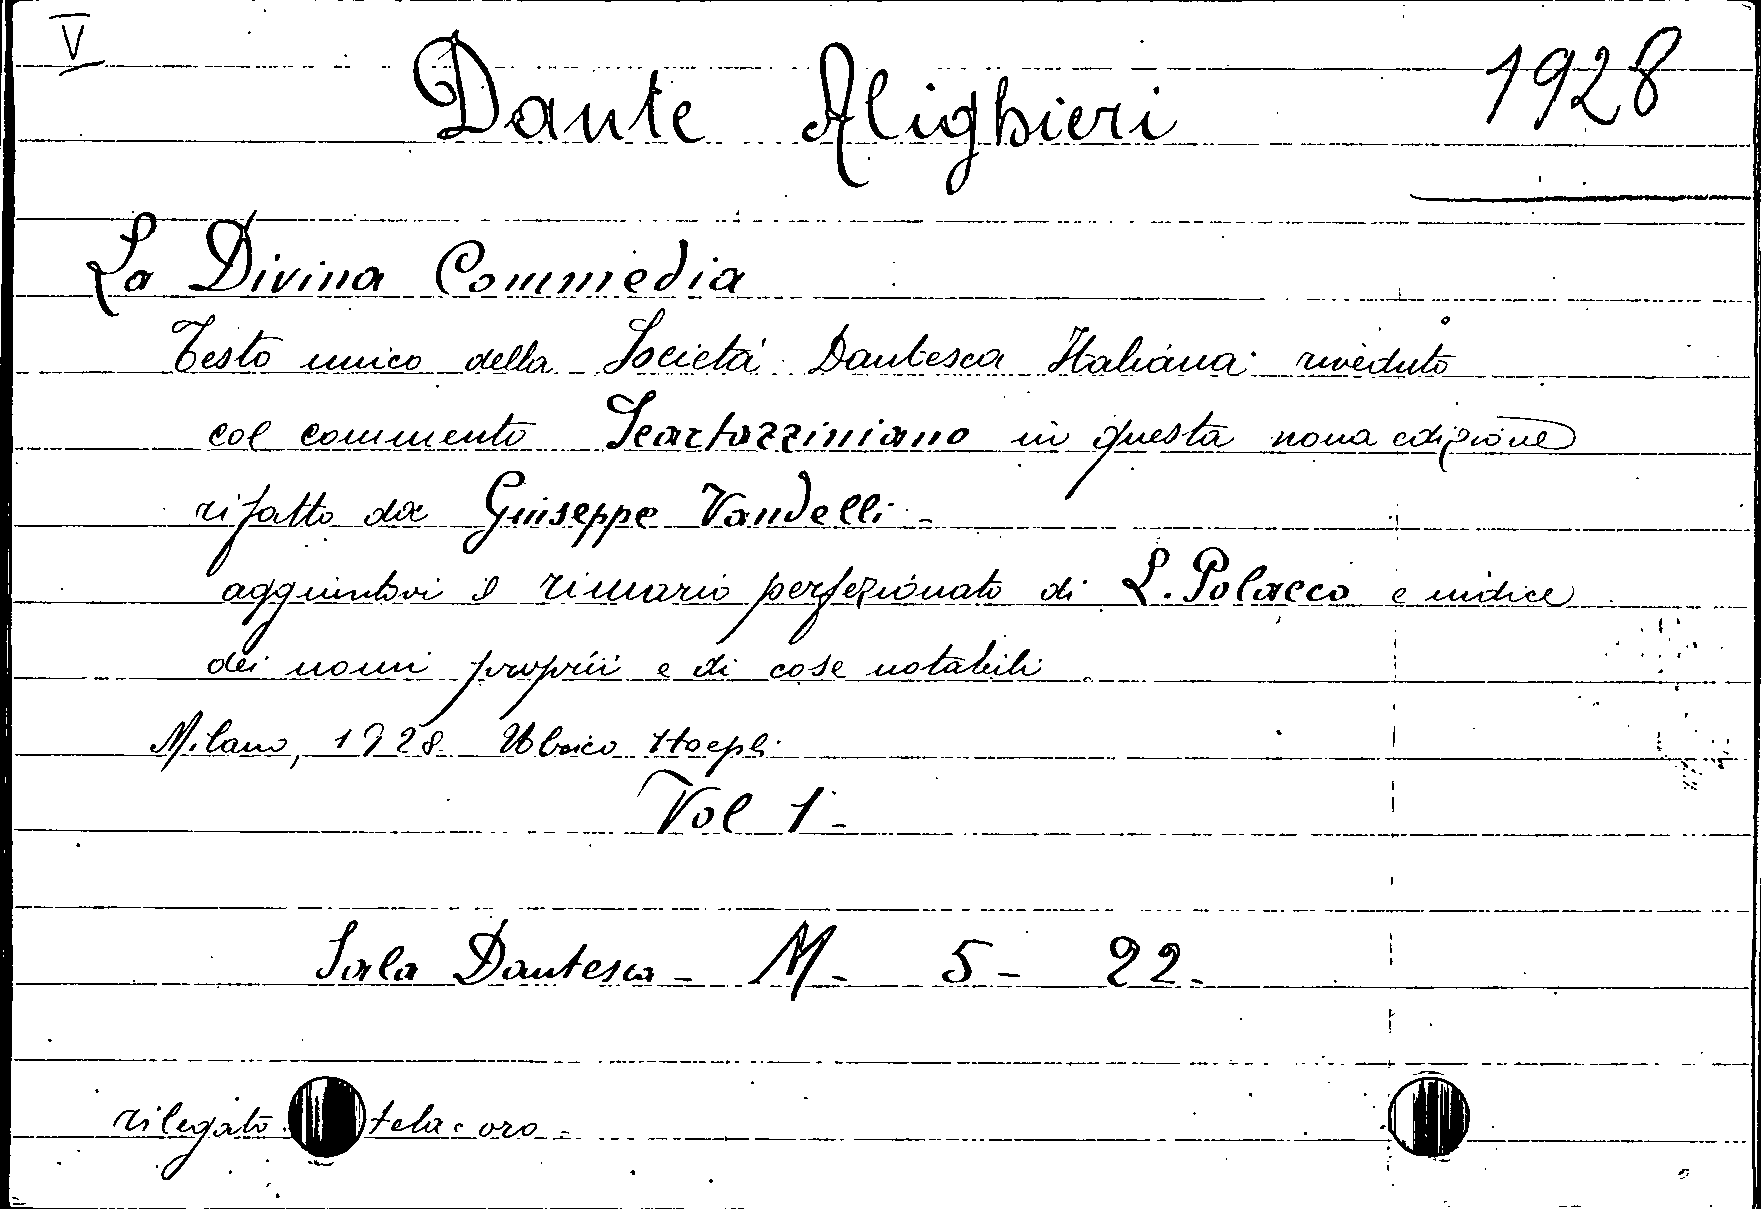 V
Dante Alighieri
1928
La Divina Commedia
Testo unico della Società Dantesca Italiana riveduto
col commento Scartazziniano in questa nona edizione
rifatto da Giuseppe Vandelli -
aggiuntovi il rimario perfezionato di L. Polacco e indice
dei nomi proprii e di cose notabili
Milano, 1928 Ulrico Hoepli
Vol 1 -
Sala Dantesca - M - 5 - 22 -
rilegato tela e oro -